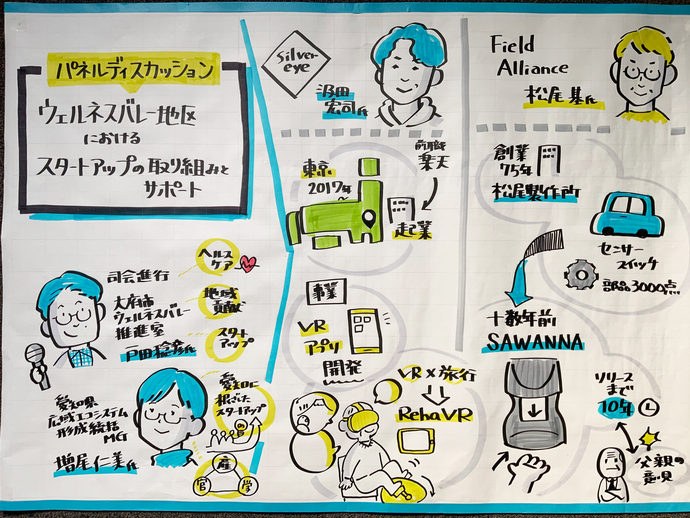 パネルディスカッション
ウェルネスバレー地区
における
スタートアップの取り組みと
サポート
司会進行
大府市
ウェルネスバレー
推進室
戸田
氏
ヘルス
ケア
地域
貢献
スタート
アップ
愛知県
広域エコシステム
形成統括
MGr
増尾仁美氏
愛知に
根ざした
スタートアップ
産
官
学
Silver-
eye
沼田
宏司氏
東京
2017年〜
前職
楽天
起業
事業
VR
アプリ
開発
VR×旅行
RehaVR
Field
Alliance
松尾 基氏
創業
75年
松尾製作所
センサー
スイッチ
部品3000点
十数年前
SAWANNA
リリース
まで
10年
父親の
意見